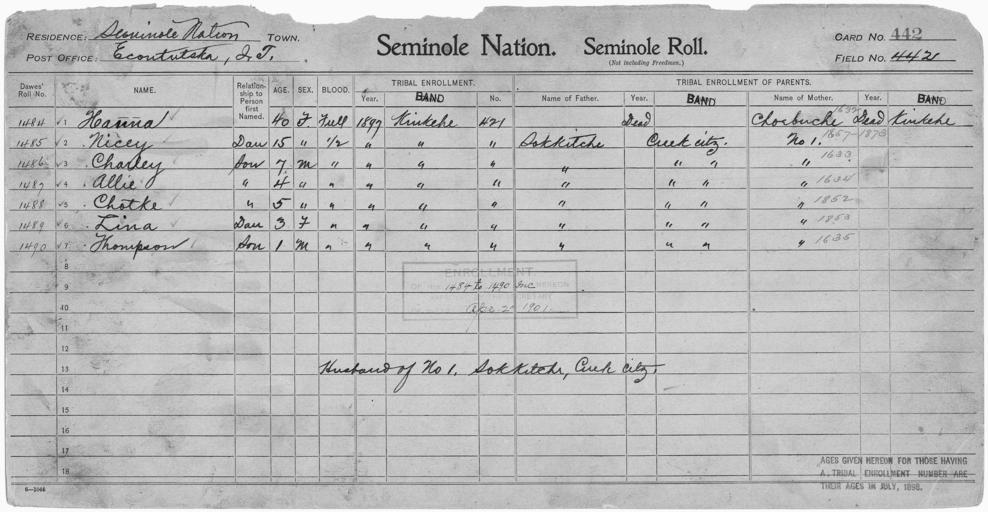 RESIDENCE: Seminole Nation TOWN.
POST OFFICE: Econtutska, I.T.
Seminole Nation. Seminole Roll.
(Not including Freedmen.)
CARD NO. 442
FIELD NO. 442
TRIBAL ENROLLMENT. TRIBAL ENROLLMENT OF PARENTS.
Dawes' Roll No. NAME. Relationship to Person first Named. AGE. SEX. BLOOD. Year. BAND No. Name of Father. Year. BAND Name of Mother. Year. BAND
1484 1 Hanna 40 F Full 1897 Kinkehe 421 Dead Choebuche 1632 Dead Kinkehe
1485 2 Nicey Dau 15 " 1/2 " " " Sokkitche Creek citz. No 1. 1857-1873
1486 3 Charley Son 7 M " " " " " " " " 1633
1487 4 Allie " 4 " " " " " " " " " 1634
1488 5 Chotke " 5 " " " " " " " " " 1852
1489 6 Lina Dau 3 F " " " " " " " " 1853
1490 7 Thompson Son 1 M " " " " " " " " 1635
8
9
10
11
12
13 Husband of No 1. Sokkitche, Creek citz.
14
15
16
17
18
ENROLLMENT
OF NOS. 1484 to 1490 Inc HEREON
APPROVED BY THE SECRETARY
Apr 2 1901.
AGES GIVEN HEREON FOR THOSE HAVING
A TRIBAL ENROLLMENT NUMBER ARE
THEIR AGES IN JULY, 1898.
6—2066